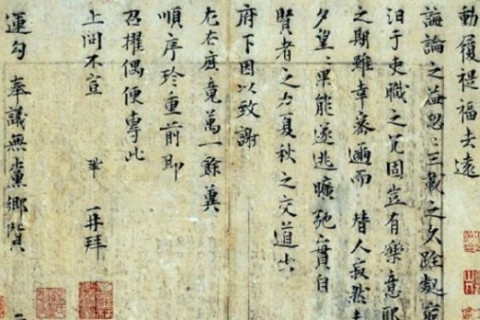 動履禔福去遠
誨論之益忽〻三載之久跧處窮
汩于吏職之冗固豈有樂意耶
之期雖幸密邇而替人寂然
夕望〻果能遂逃曠弛實自
賢者之力夏秋之交道出
府下因以致謝
左右庶竟萬一餘冀
順序珍重前即
召擢偶便專此
上問不宣 鞏 再拜
運勾奉議無黨鄉賢 二